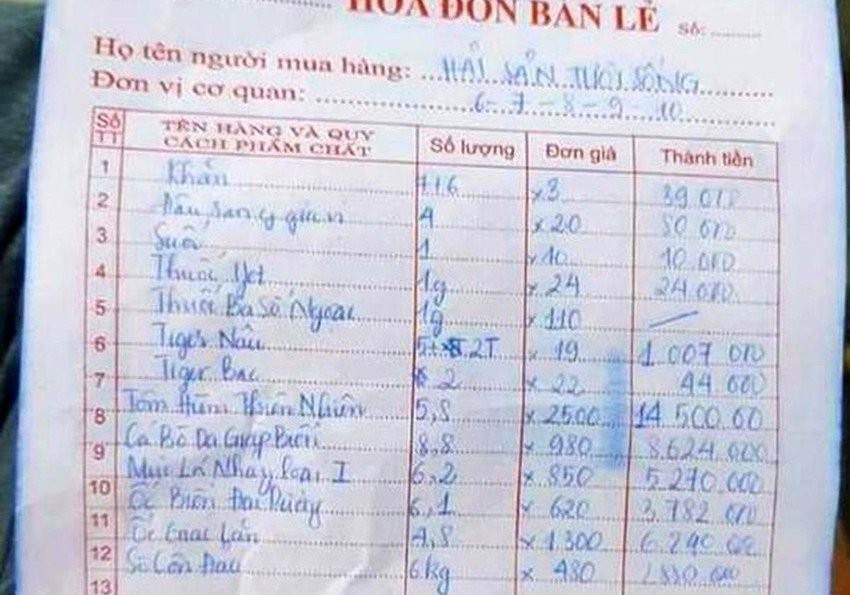 HÓA ĐƠN BÁN LẺ Số:
Họ tên người mua hàng: HẢI SẢN TƯƠI SỐNG
Đơn vị cơ quan: 6-7-8-9-10
Số TT TÊN HÀNG VÀ QUY CÁCH PHẨM CHẤT Số lượng Đơn giá Thành tiền
1 Khăn x3 39.000
2 Đậu, 4 x20 80.000
3 Suối 1 x10 10.000
4 Thuốc 1g x24 24.000
5 Thuốc Ba Số Ngoại 1g x110
6 Tiger Nâu 2T x 19 1.007.000
7 Tiger Bạc 2 x 22 44.000
8 Tôm Hùm Thiên Nhiên 5,8 x2500 14.500.00
9 Cá Bò Da Giáp Biển 8,8 x 980 8.624.000
10 Mực Lá Nháy loại I 6,2 x 850 5.270.000
11 Ốc Biển Đại Dương 6,1 x 620 3.782.000
12 Ốc x1300 6.240.000
13 Sò 6kg x 480 2.880.000